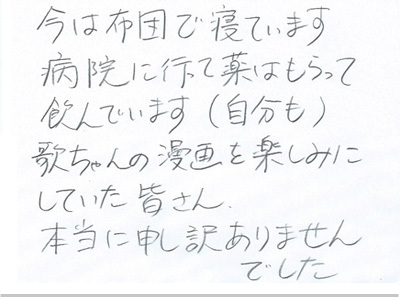 今は布団で寝ています
病院に行て薬はもらって
飲んでいます(自分も)
歌ちゃんの漫画を楽しみに
していた皆さん.
本当に申し訳ありません
でした